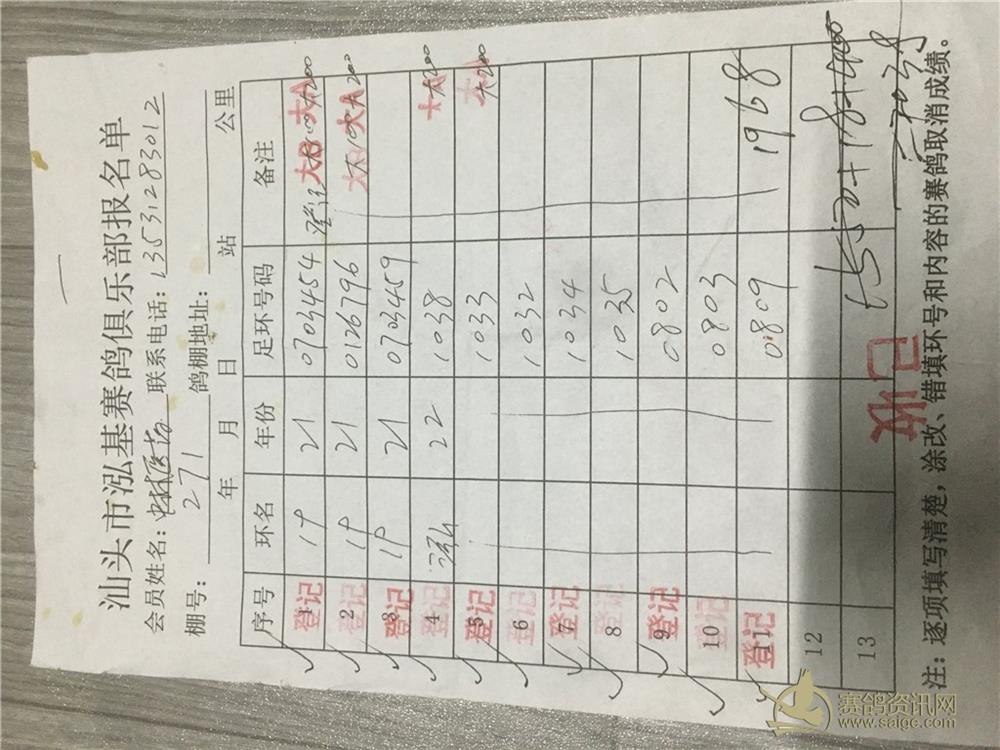 汕头市泓基赛鸽俱乐部报名单
会员姓名: 联系电话:13531283012
棚号: 271 鸽棚地址:
年 月 日 站 公里
序号 环名 年份 足环号码 备注
1 登记 19 21 0703454 大B 大A 大200
2 登记 19 21 0126796 大B 大A 大200
3 登记 19 21 0703459
4 登记 22 1038 大A 大200
5 登记 1033 大A 大200
6 登记 1032
7 登记 1034
8 登记 1035
9 登记 0802
10 登记 0803
11 登记 0809 1968
12
13
已收
注:逐项填写清楚,涂改、错填环号和内容的赛鸽取消成绩。
赛鸽资讯网
www.saigc.com